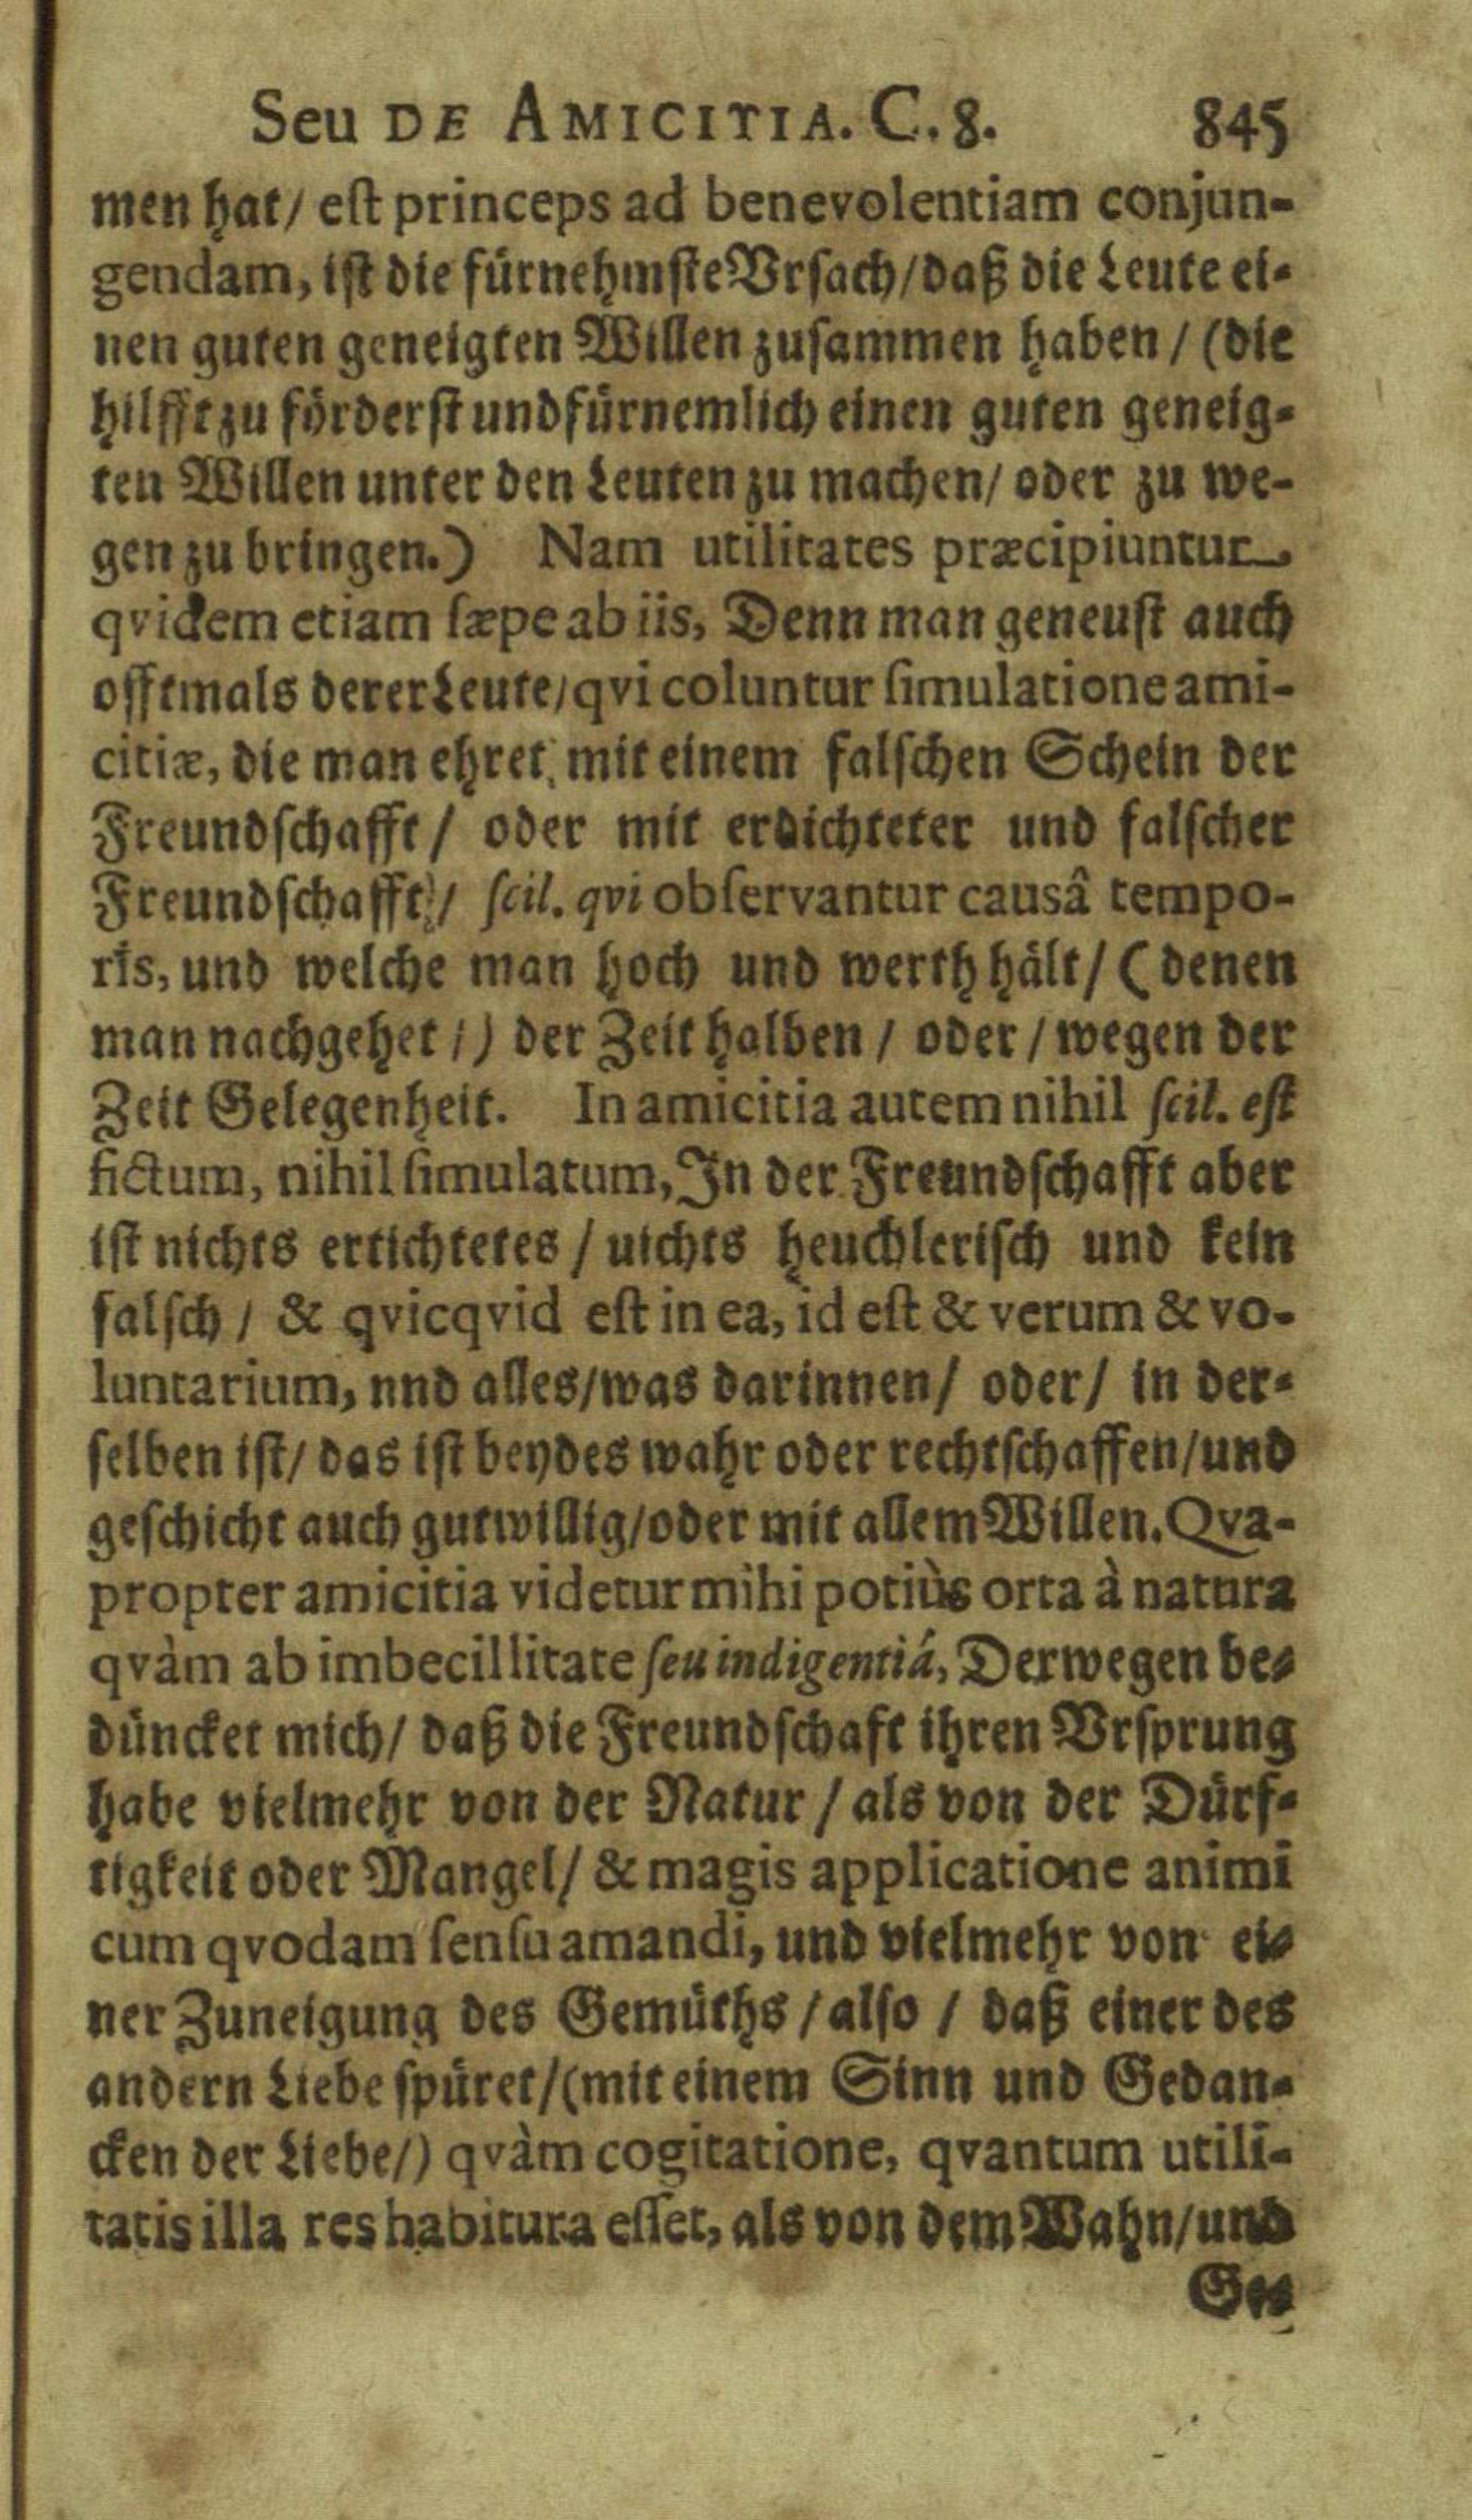 Seu DE AMICITIA. C. 8. 845
men hat/ est princeps ad benevolentiam conjun-
gendam, ist die fürnehmste Vrsach/ daß die Leute ei-
nen guten geneigten Willen zusammen haben / (die
hilfft zu förderst und fürnemlich einen guten geneig-
ten Willen unter den Leuten zu machen/ oder zu we-
gen zu bringen.) Nam utilitates præcipiuntur
qvidem etiam sæpe ab iis, Denn man geneust auch
offtmals derer Leute/ qvi coluntur simulatione ami-
citiæ, die man ehret, mit einem falschen Schein der
Freundschafft / oder mit erdichteter und falscher
Freundschafft)/ scil. qvi observantur causâ tempo-
ris, und welche man hoch und werth hält/ (denen
man nachgehet /) der Zeit halben / oder / wegen der
Zeit Gelegenheit. In amicitia autem nihil scil. est
fictum, nihil simulatum, In der Freundschafft aber
ist nichts ertichtetes / uichts heuchlerisch und kein
falsch / & qvicqvid est in ea, id est & verum & vo-
luntarium, nnd alles/ was darinnen/ oder/ in der-
selben ist/ das ist beydes wahr oder rechtschaffen/ und
geschicht auch gutwillig/ oder mit allem Willen. Qva-
propter amicitia videtur mihi potiùs orta à natura
qvàm ab imbecillitate seu indigentiâ, Derwegen be-
düncket mich/ daß die Freundschaft ihren Vrsprung
habe vielmehr von der Natur / als von der Dürf-
tigkeit oder Mangel/ & magis applicatione animi
cum qvodam sensu amandi, und vielmehr von ei-
ner Zuneigung des Gemüths / also / daß einer des
andern Liebe spüret/ (mit einem Sinn und Gedan-
cken der Liebe/) qvàm cogitatione, qvantum utili-
tatis illa res habitura esset, als von dem Wahn/ und
Ge-